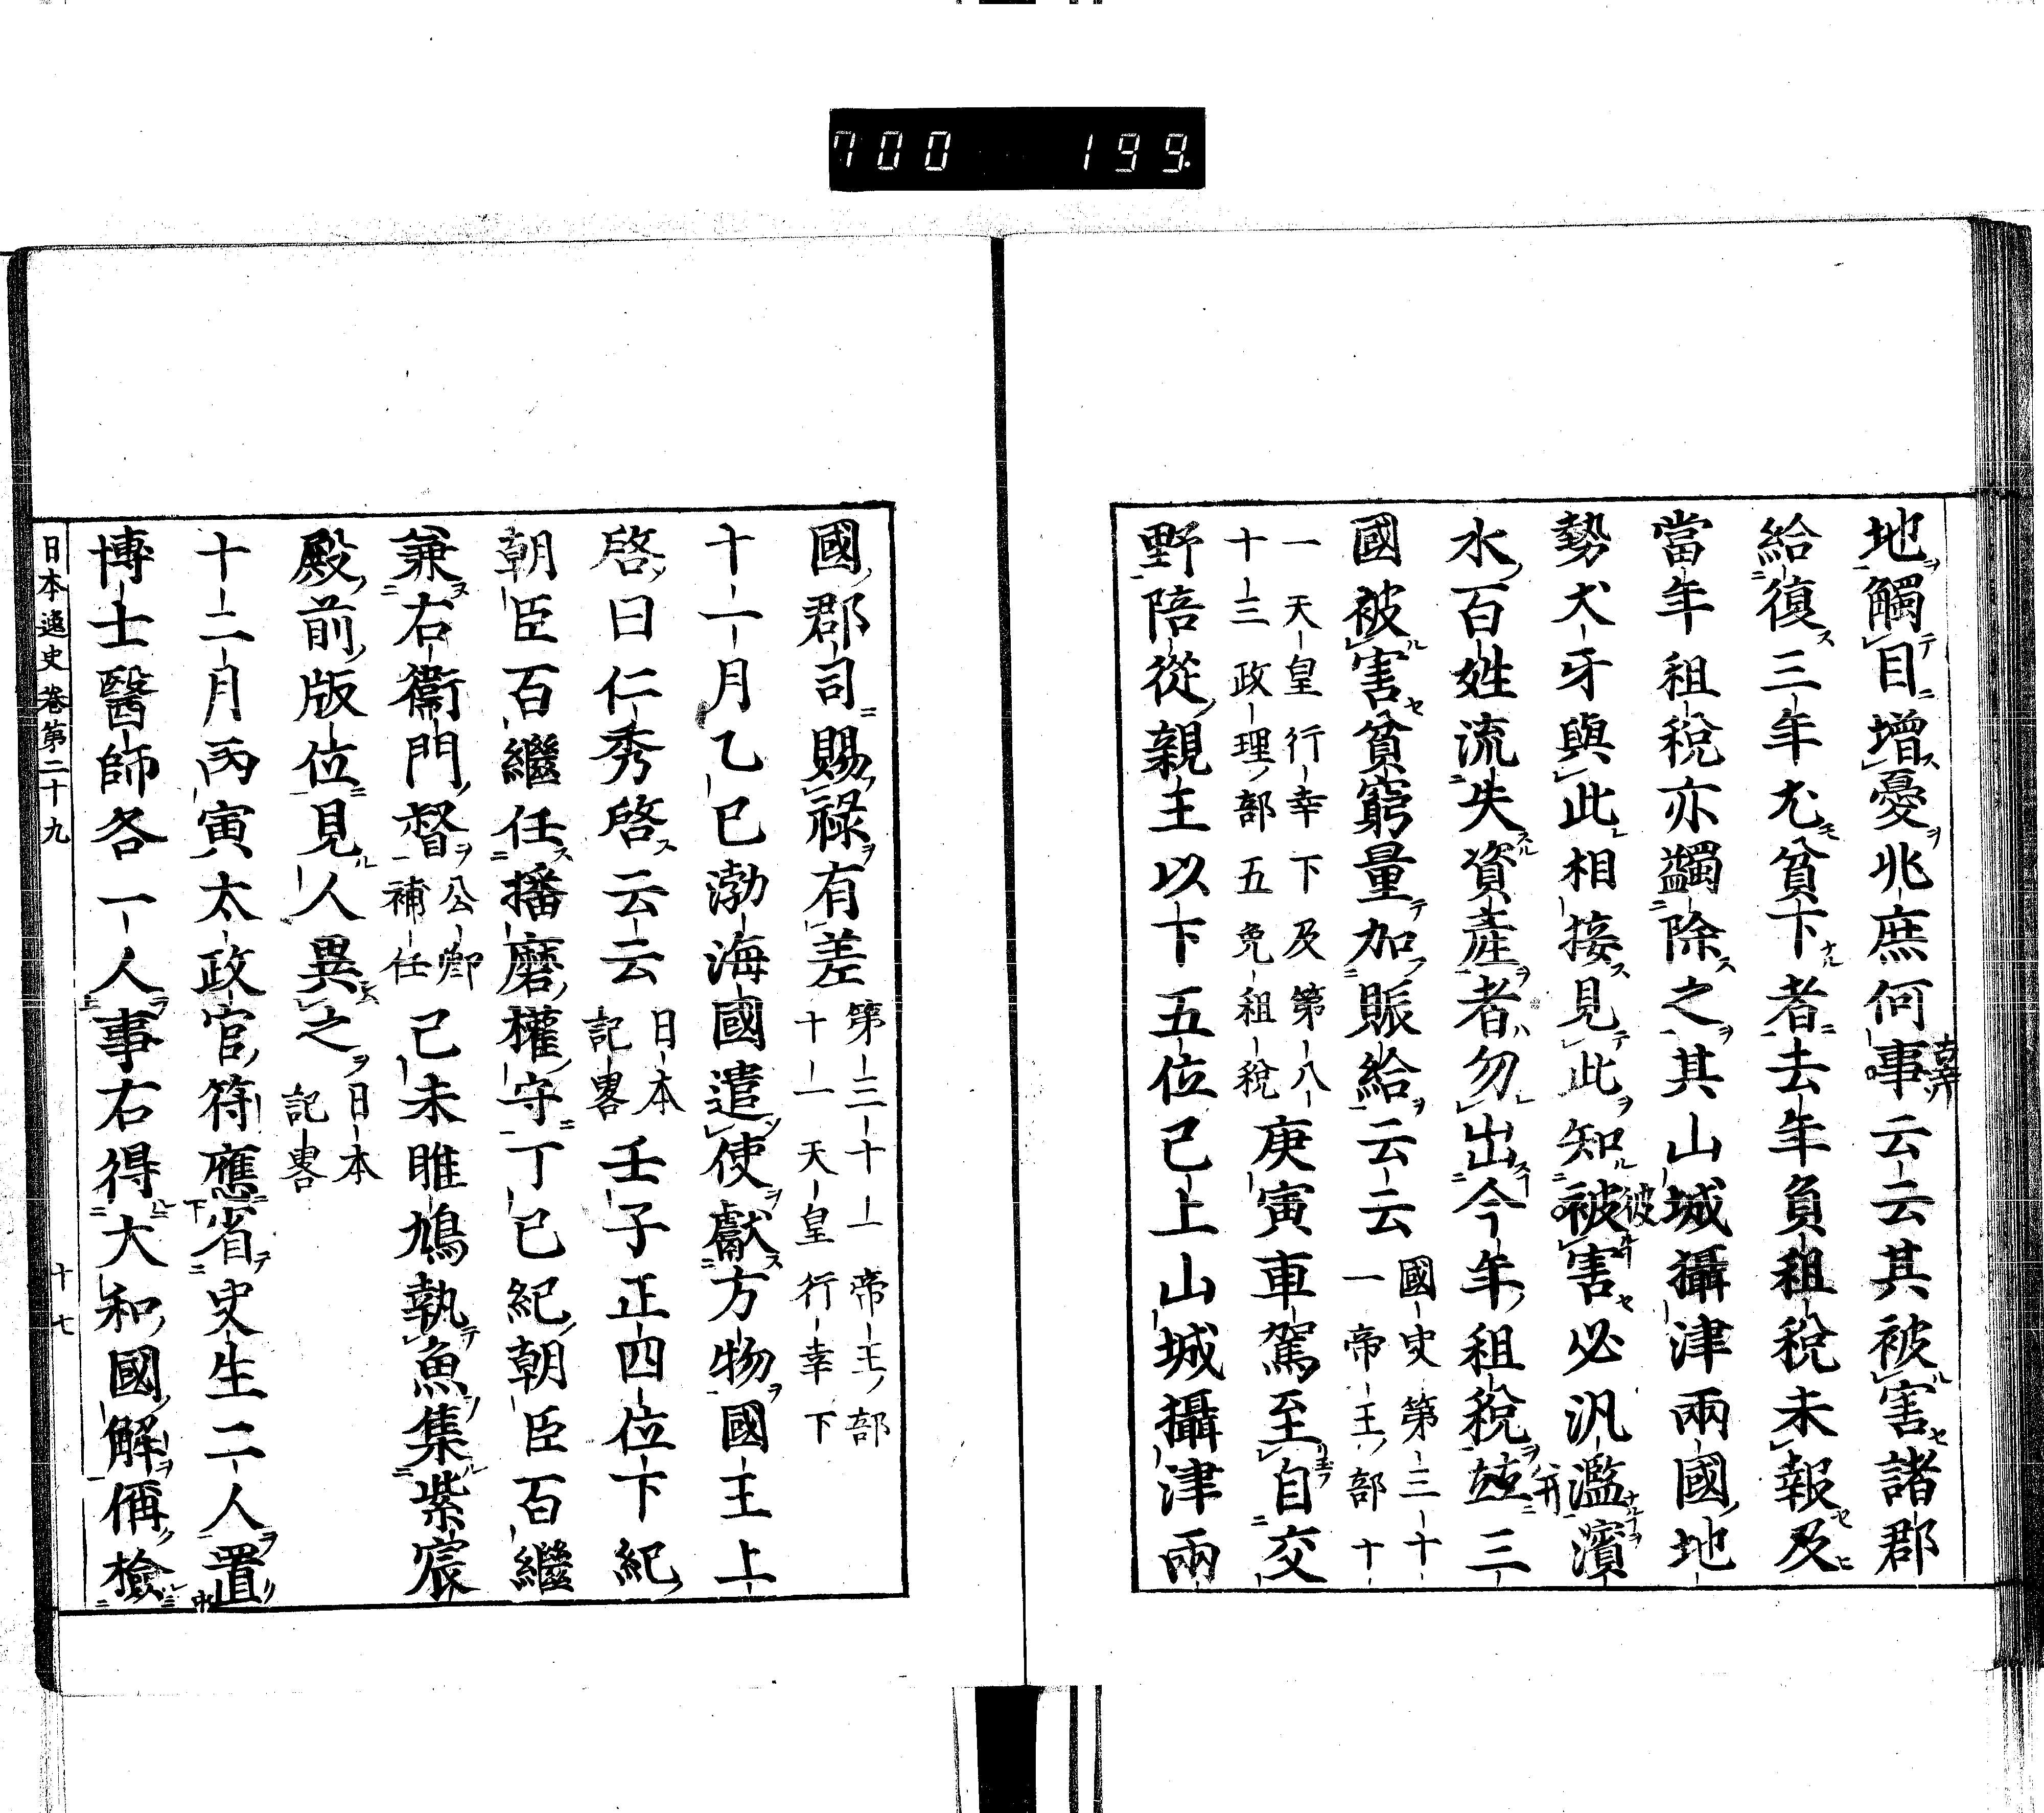 700 199
地觸目增憂兆庶何事云云其被害諸郡
給復三年尤貧下者去年負租稅未報及
當年租稅亦蠲除之其山城攝津兩國地
勢犬牙與此相接見此知被害必汎濫濱
水百姓流失資產者勿出今年租稅竝三
國被害貧窮量加賑給云云國史第三十一帝王部十
一天皇行幸下及第八十三政理部五免租稅庚寅車駕至自交
野陪從親王以下五位已上山城攝津兩
國郡司賜祿有差第三十一帝王部十一天皇行幸下
十一月乙巳渤海國遣使獻方物國王上
啓曰仁秀啓云云日本記畧壬子正四位下紀
朝臣百繼任播磨權守丁巳紀朝臣百繼
兼右衞門督公卿補任己未雎鳩執魚集紫宸
殿前版位見人異之日本記畧
十二月丙寅太政官符應省史生二人置
博士醫師各一人事右得大和國解偁檢
日本逸史卷第二十九 十七